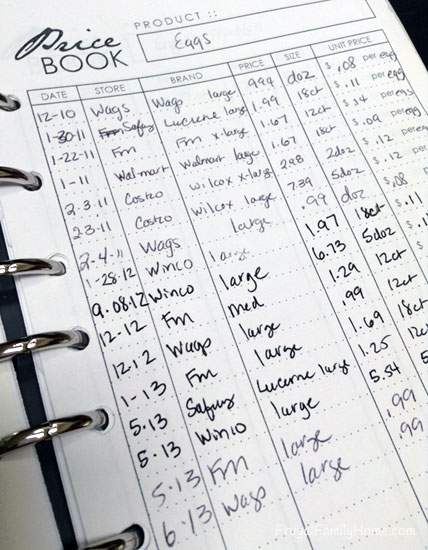 Price BOOK
PRODUCT ::
Eggs
DATE STORE BRAND PRICE SIZE UNIT PRICE
12-10 Wags Wags large 99¢ doz $.08 per egg
1-30-11 Safway Lucerne large 1.99 18ct $.11 per egg
1-22-11 Fm Fm x-large 1.67 12ct $.14 per egg
1-11 Walmart Walmart large 1.67 18ct $.09 per egg
2-3-11 Costco Wilcox x-large 2.98 2doz $.12 per egg
2.3.11 Costco Wilcox large 7.39 5doz $.12
2-4-11 Wags large .99 doz $.08
1-28-12 Winco large 1.97 18ct $.11
9.08.12 Winco large 6.73 5doz
12-12 Fm med 1.29 12ct
12.12 Wags large .99 12ct
1-13 Fm large 1.69 18ct
5.13 Safway Lucerne large 1.25 12ct
5.13 Winco large 5.54
5.13 Fm large .99
6.13 Wags large .99